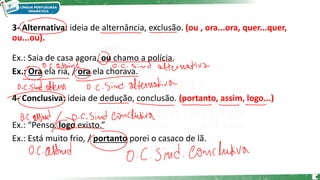 LÍNGUA PORTUGUESA
GRAMÁTICA
3- Alternativa: ideia de alternância, exclusão. (ou , ora...ora, quer...quer,
ou...ou).
Ex.: Saia de casa agora, ou chamo a polícia.
O.C. assind O.C. sind alternativa
Ex.: Ora ela ria, / ora ela chorava.
O.C. sind altern O.C. sind alternativa
4- Conclusiva: ideia de dedução, conclusão. (portanto, assim, logo...)
O.C. assind / O.C. sind Conclusiva
Ex.: “Penso, logo existo.”
Ex.: Está muito frio, / portanto porei o casaco de lã.
O.C. assind O.C sind. Conclusiva